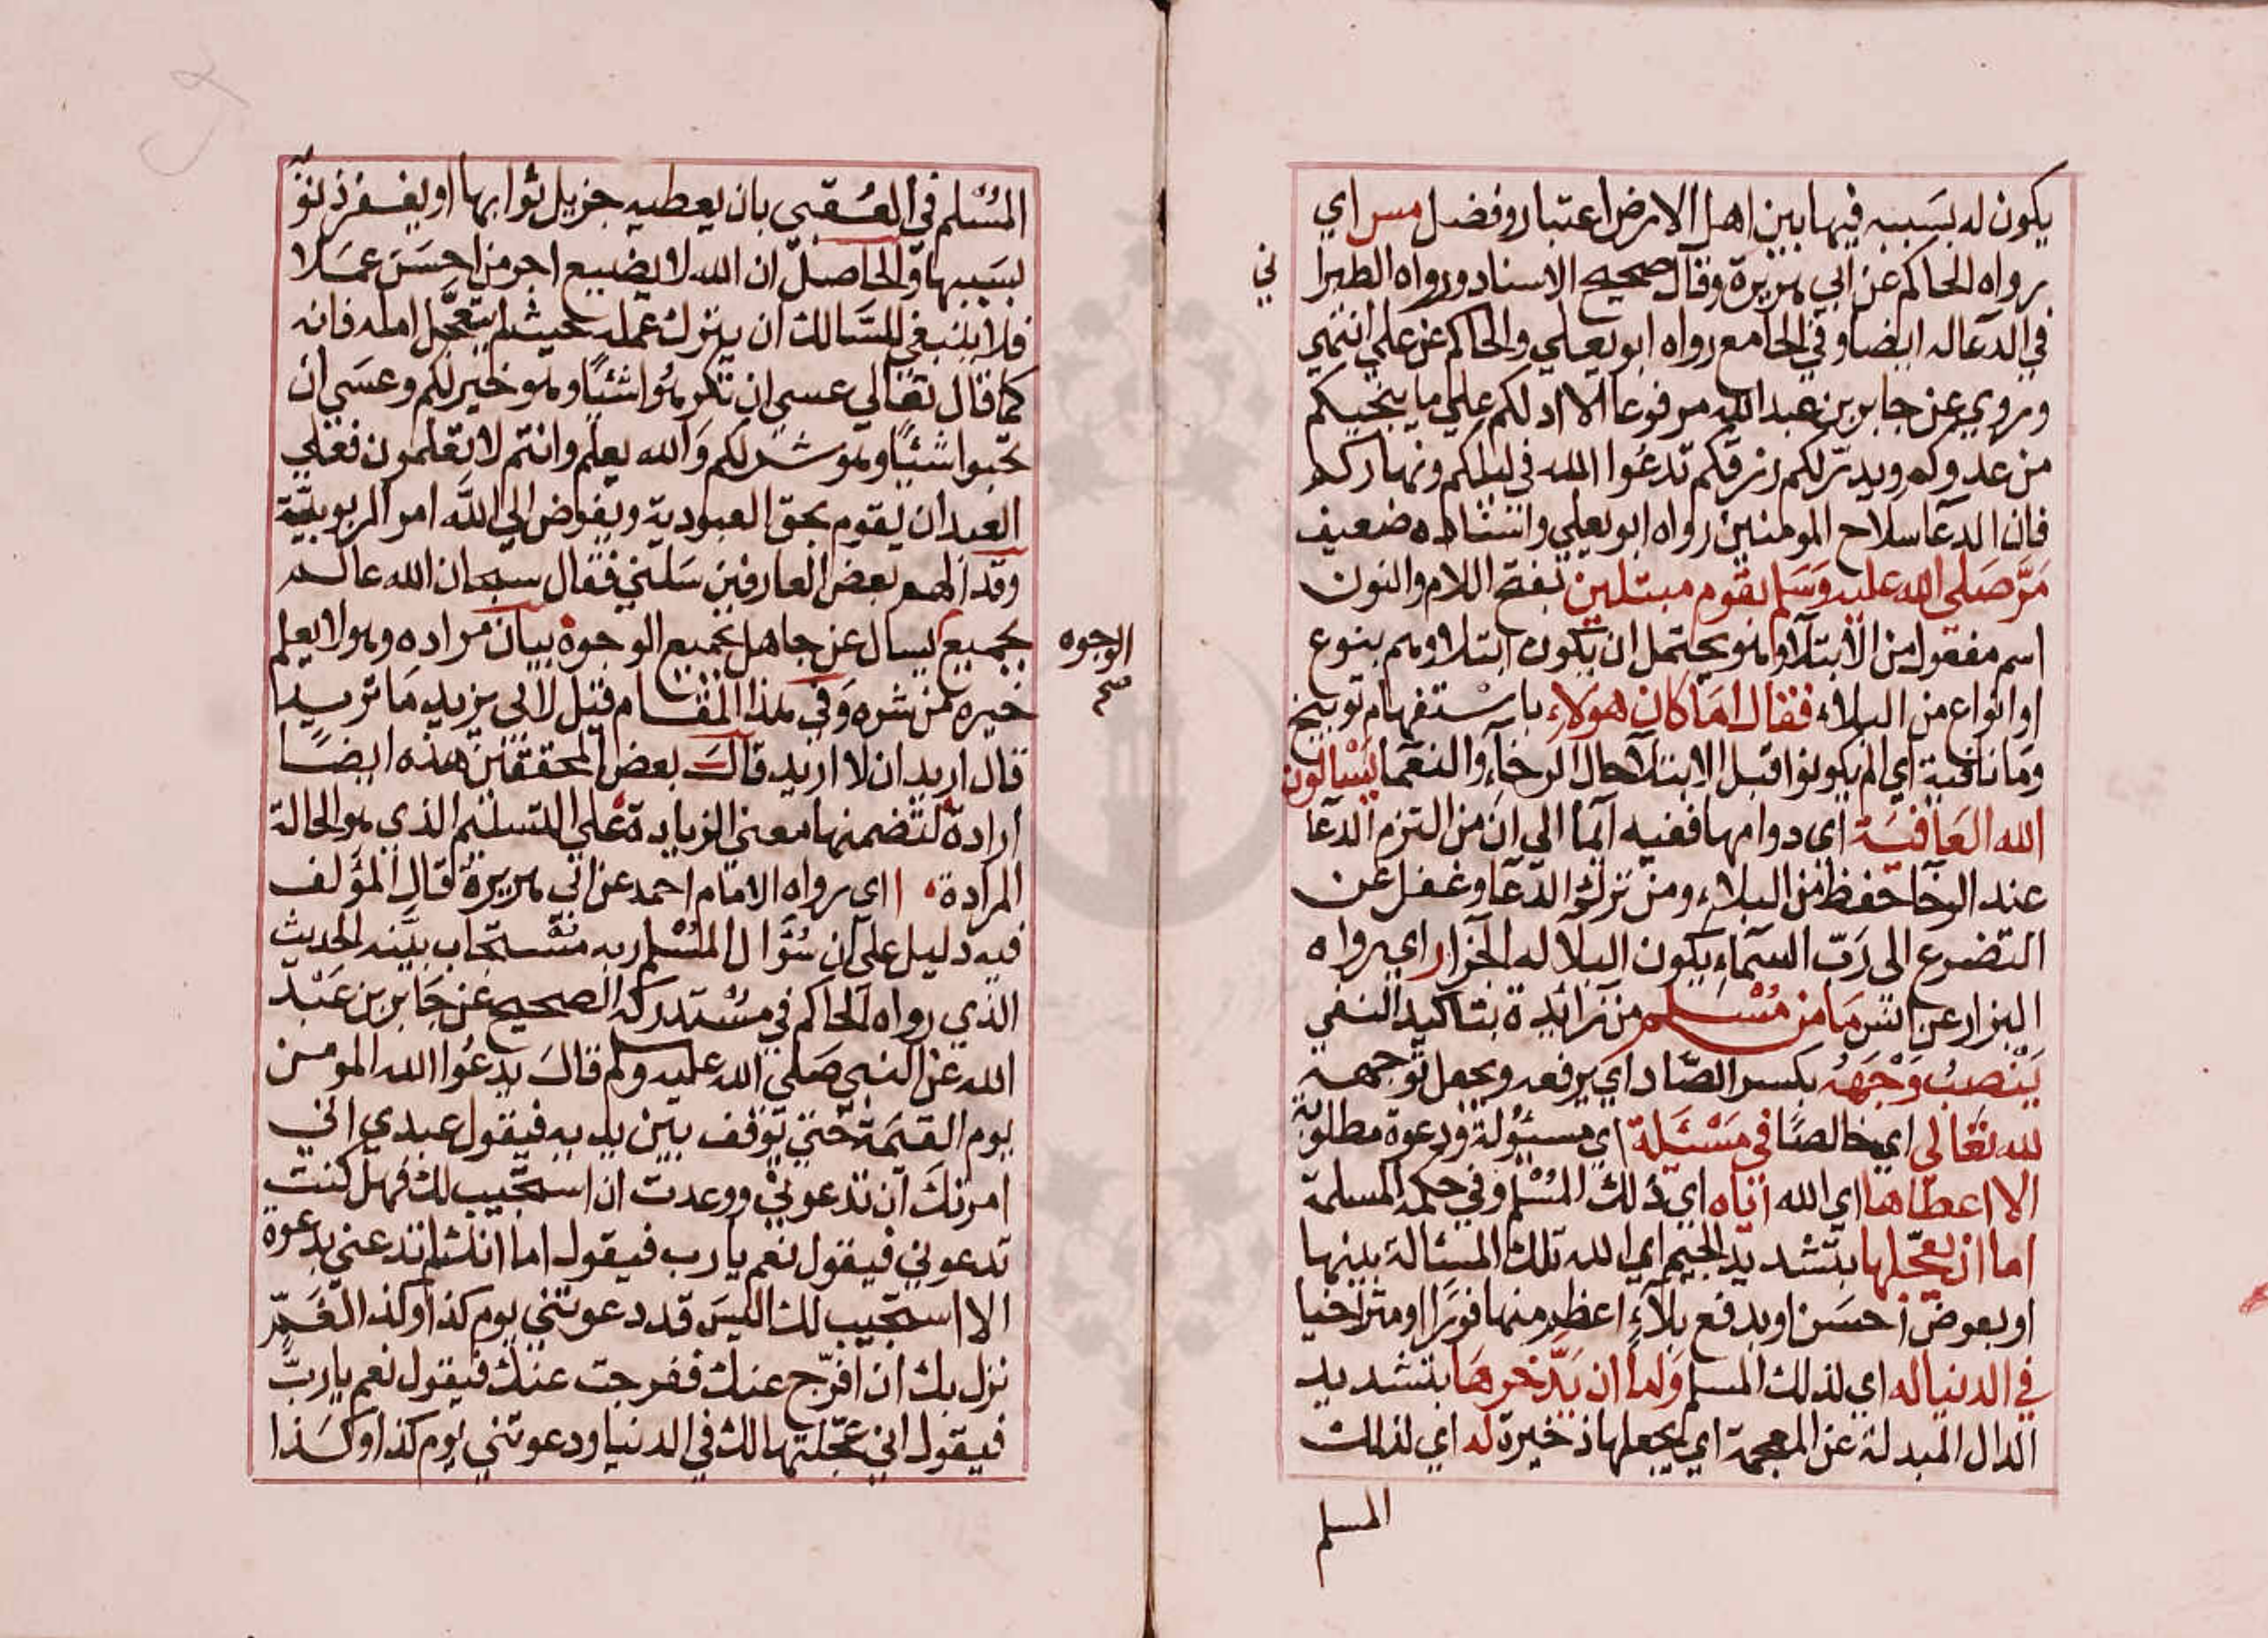 يكون له بسببه فيها بين اهل الارض اعتبار وفضل مس اي
رواه الحاكم عن ابي هريرة وقال صحيح الاسناد ورواه الطبرا
ني
في الدعا له ايضا وفي الجامع رواه ابو يعلي والحاكم عن علي انتهي
وروي عن جابر بن عبد الله مرفوعا الا ادلكم علي ما ينجيكم
من عدوكم ويدر لكم رزقكم تدعوا الله في ليلكم ونهاركم
فان الدعا سلاح المومنين رواه ابو يعلي واسناده ضعيف
مَرَّ صَلي الله عليه وَسَلم بقوم مبتلين بفتح اللام والنون
اسم مفعول من الابتلآ وهو يحتمل ان يكون ابتلاوهم بنوع
او انواع من البلاء فقال امَا كان هولاء باستفهام توبيخ
ومَا نافية اي الم يكونوا قبل الابتلآ حال الرخآء والنعما يَسْالون
الله العَافيَة اي دوامها ففيه ايمآ الي ان من التزم الدعآ
عند الرخآ حفظ من البلاء ومن ترك الدعآ وغفل عن
التضرع الى رَبّ السمآء يكون البلآ له الجزا ر اي رواه
البزار عن انس مَا من مُسْلم من زائدة بتاكيد النفي
يَنْصِبُ وَجْهَهُ بكسر الصّاد اي يرفعه ويجعل توجهه
لله تعَالى اي خالصًا في مَسْئَلة اي مسئولة ودعوة مطلوبة
الا اعطاها اي الله اياه اي ذلك المُسْلم وفي حكمه المسلمة
اما ان يعجّلها بتشديد الجيم اي الله تلك المسئالة بينها
او بعوض احسَن او بدفع بلآء اعظم منها فورًا او متراخيا
في الدنيا له اي لذلك المسلم وَاما ان يَدّخرهَا بتشديد
الدال المبدلة عن المعجمة اي يجعلها ذخيرة له اي لذلك
المسلم
المُسْلم في العُقبي بان يعطيه جزيل ثوابها او يغفر ذنو
بسَببها والحاصل ان الله لا يضيع اجر من احسَن عمَلا
فلا ينبغي للسَالك ان يترك عمله حيث لم يتعجَّل امله فانه
كما قال تعالي عسي ان تكرهوا شئيًا وهو خير لكم وعسَي ان
تحبوا شئيًا وهو شر لكم وَالله يعلم وانتم لا تعلمون فعلي
العبد ان يقوم بحق العبودية ويفوض الي الله امر الربوبيَّة
وقد الهم بعض العارفين سَلني فقال سبحان الله عالم
بجميع ايسال عن جاهل بجميع الوجوه بيان مراده وهو لا يعلم
الوجوه
صح
خيره من شره وَفي هذا المقام قيل لابي يزيد مَا تريد
قال اريد ان لا اريد قالَ بعض المحققين هذه ايضًا
ارادة لتضمنها معني الزيادة علي التسليم الذي هو الحالة
المرادة ا اي رواه الامام احمد عن ابي هريرة قال المؤلف
فيه دليل علي ان سُؤال المُسْلم ربه مسْتجاب بيَّنه الحديث
الذي رواه الحاكم في مسْتدركه الصحيح عن جَابر بن عَبْد
الله عن النبي صَلي الله عليه وسلم قالَ يدعُوا الله المومن
يوم القيمة حتي توقف بين يديه فيقول عبدي اني
امرتكَ ان تدعوني ووعدت ان استجيب لك فهل كنت
تدعوني فيقول نعم يا رب فيقول اما انك لم تدعني بدعوة
الا استجيب لك اليسَ قد دعوتني يوم كذا وكذا لغَمّ
نزل بك ان افرّج عنك ففرجت عنك فيقول نعم يا ربّ
فيقول اني عجّلتها لك في الدنيا ودعوتني يوم كذا وكذا